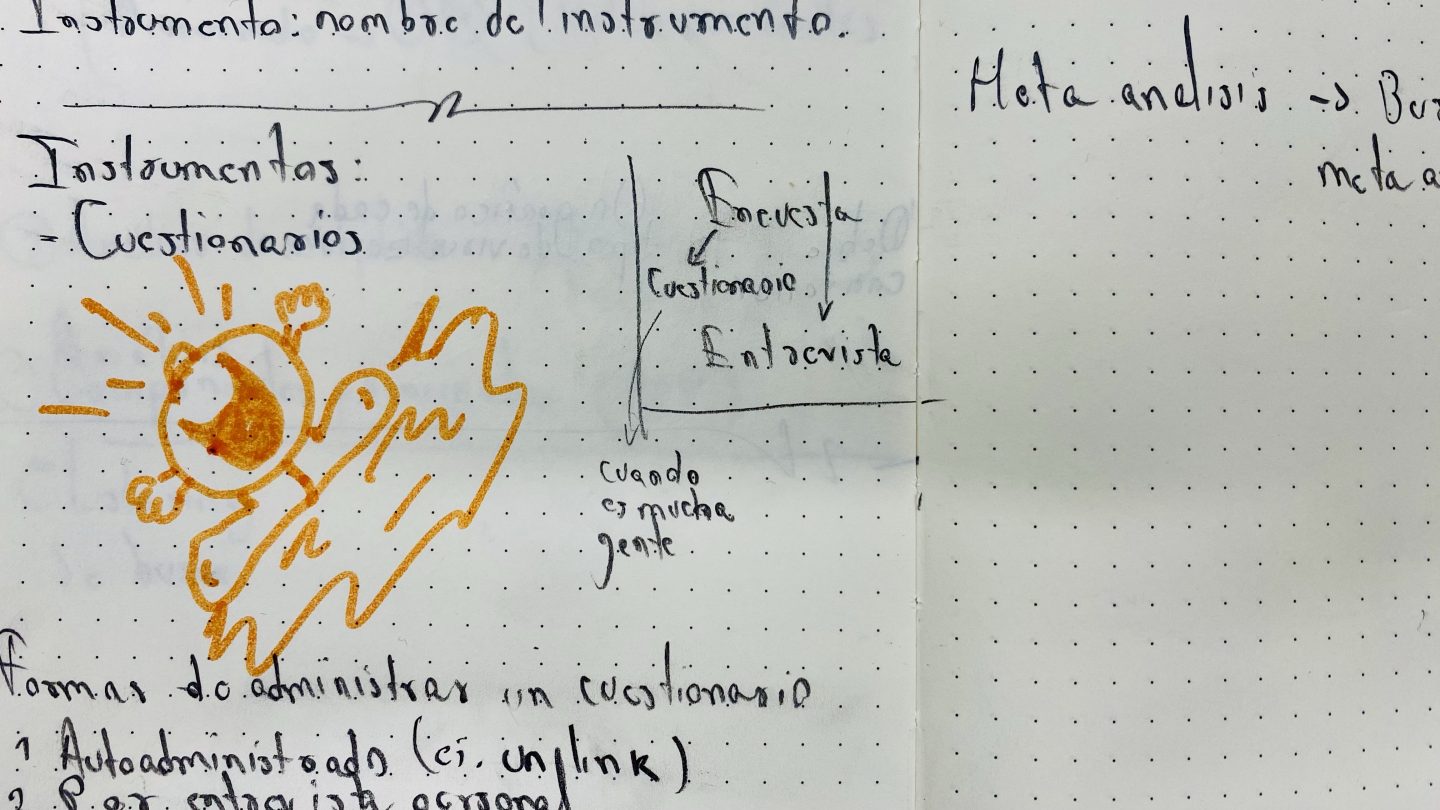 Instrumento: nombre del instrumento.
Instrumentos:
- Cuestionarios
Encuesta
Cuestionario
Entrevista
cuando
es mucha
gente
Formas de administrar un cuestionario
1 Autoadministrado (ej. un link)
2 Por entrevista personal
Meta analisis -> Bus
meta a